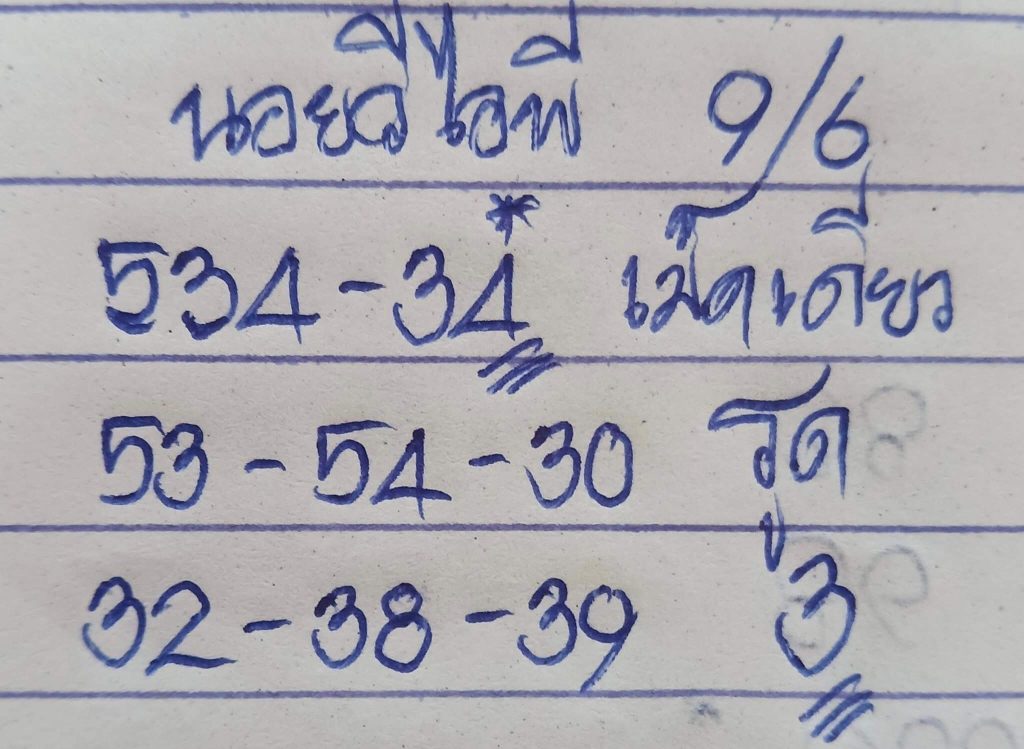 นอยวีไอพี 9/6
534-34* เม็ดเดียว
53-54-30 รูด
32-38-39 3